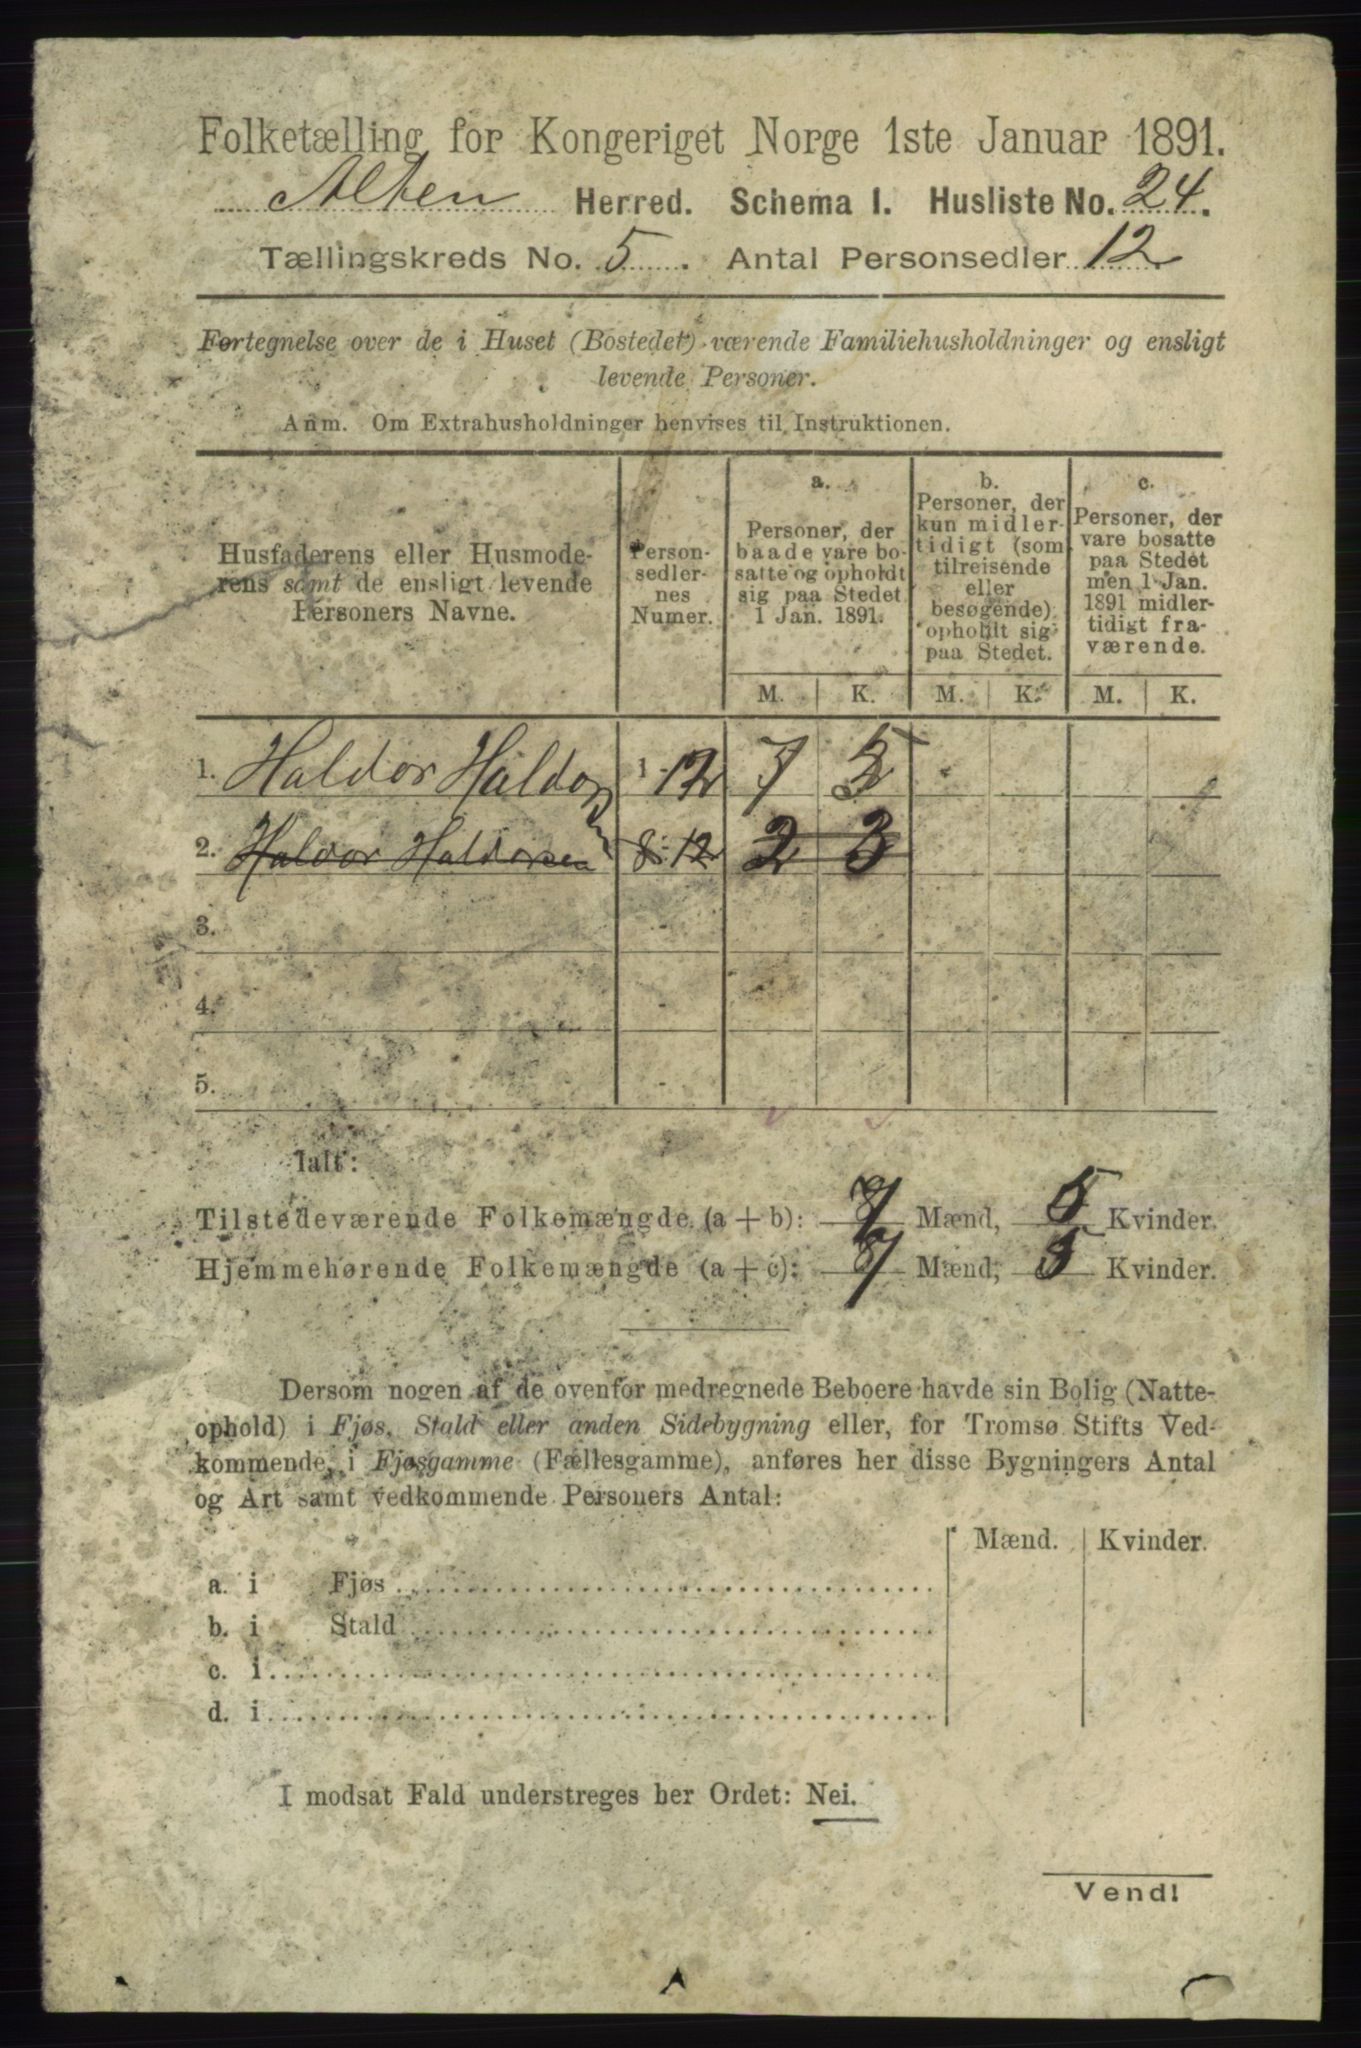 Folketælling for Kongeriget Norge 1ste Januar 1891.
Alten Herred. Schema I. Husliste No. 24.
Tællingskreds No. 5. Antal Personsedler 12.
Fortegnelse over de i Huset (Bostedet) værende Familiehusholdninger og ensligt
levende Personer.
Anm. Om Extrahusholdninger henvises til Instruktionen.
Husfaderens eller Husmode-
rens samt de ensligt levende
Personers Navne.
Person-
sedler-
nes
Numer.
a.
Personer, der
baade vare bo-
satte og opholdt
sig paa Stedet
1 Jan. 1891.
b.
Personer, der
kun midler-
tidigt (som
tilreisende
eller
besøgende)
opholdt sig
paa Stedet.
c.
Personer, der
vare bosatte
paa Stedet
men 1 Jan.
1891 midler-
tidigt fra-
værende.
M. K. M. K. M. K.
1. Haldor Haldorsen 1-12 7 5
2. Haldor Haldorsen 8-12 2 3
3.
4.
5.
Ialt:
Tilstedeværende Folkemængde (a+b): 7 Mænd, 5 Kvinder.
Hjemmehørende Folkemængde (a+c): 7 Mænd, 5 Kvinder.
Dersom nogen af de ovenfor medregnede Beboere havde sin Bolig (Natte-
ophold) i Fjøs, Stald eller anden Sidebygning eller, for Tromsø Stifts Ved-
kommende, i Fjøsgamme (Fællesgamme), anføres her disse Bygningers Antal
og Art samt vedkommende Personers Antal:
Mænd. Kvinder.
a. i Fjøs
b. i Stald
c. i
d. i
I modsat Fald understreges her Ordet: Nei.
Vend!